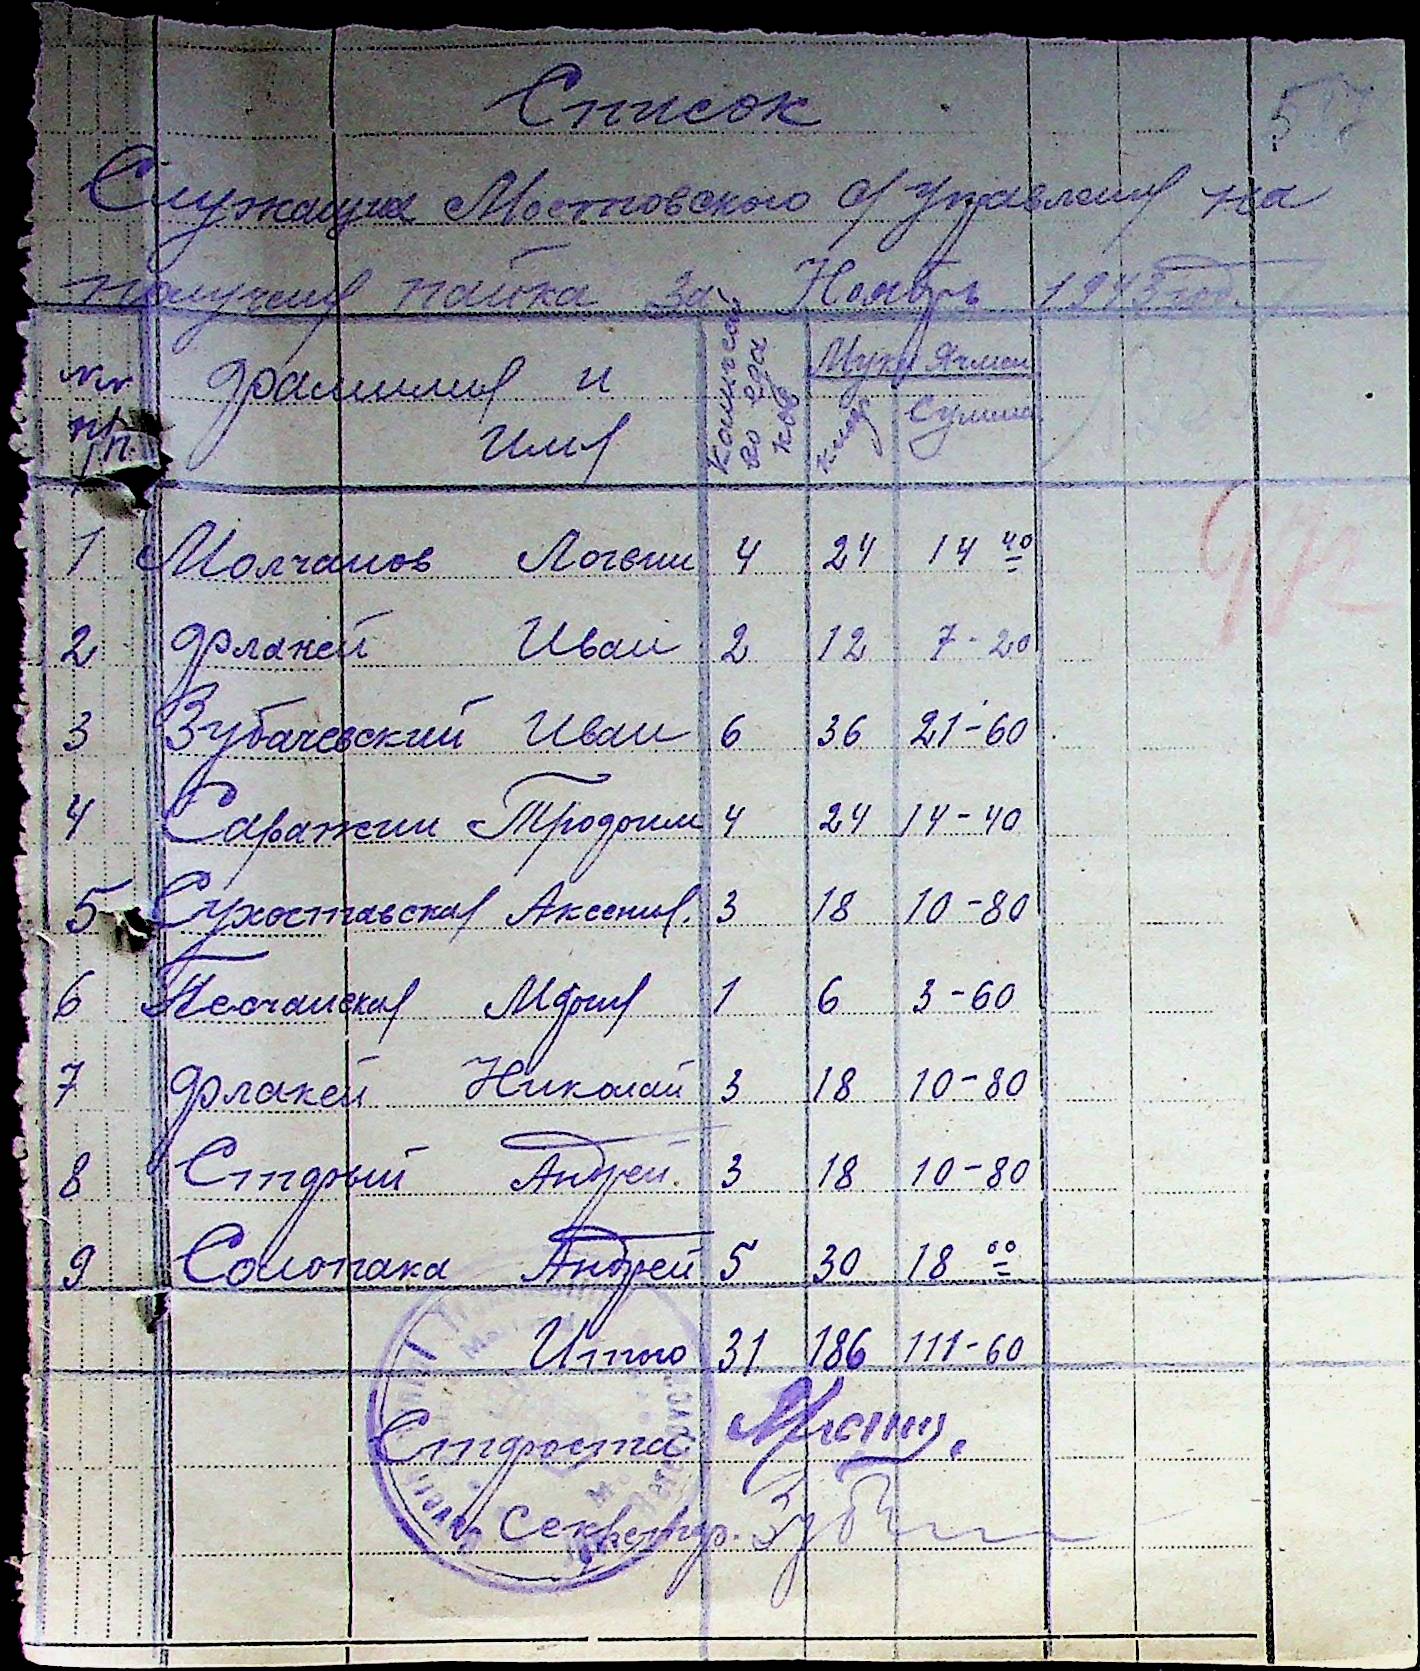 Список
Служащих Мостовского с/управления на
получения пайка за Ноябрь 1943 год.
№№ п/п. Фамилия и Имя Количество едаков Муки Ячмен килогр Сумма
1 Молчанов Логвин 4 24 14 40
2 Флакей Иван 2 12 7-20
3 Зубачевский Иван 6 36 21-60
4 Саражин Трофим 4 24 14-40
5 Сухоставская Аксения. 3 18 10-80
6 Песчанская Мфия 1 6 3-60
7 Флакей Николай 3 18 10-80
8 Старый Андрей. 3 18 10-80
9 Солопака Андрей 5 30 18 00
Итого 31 186 111-60
Староста
Секретар. Зуб